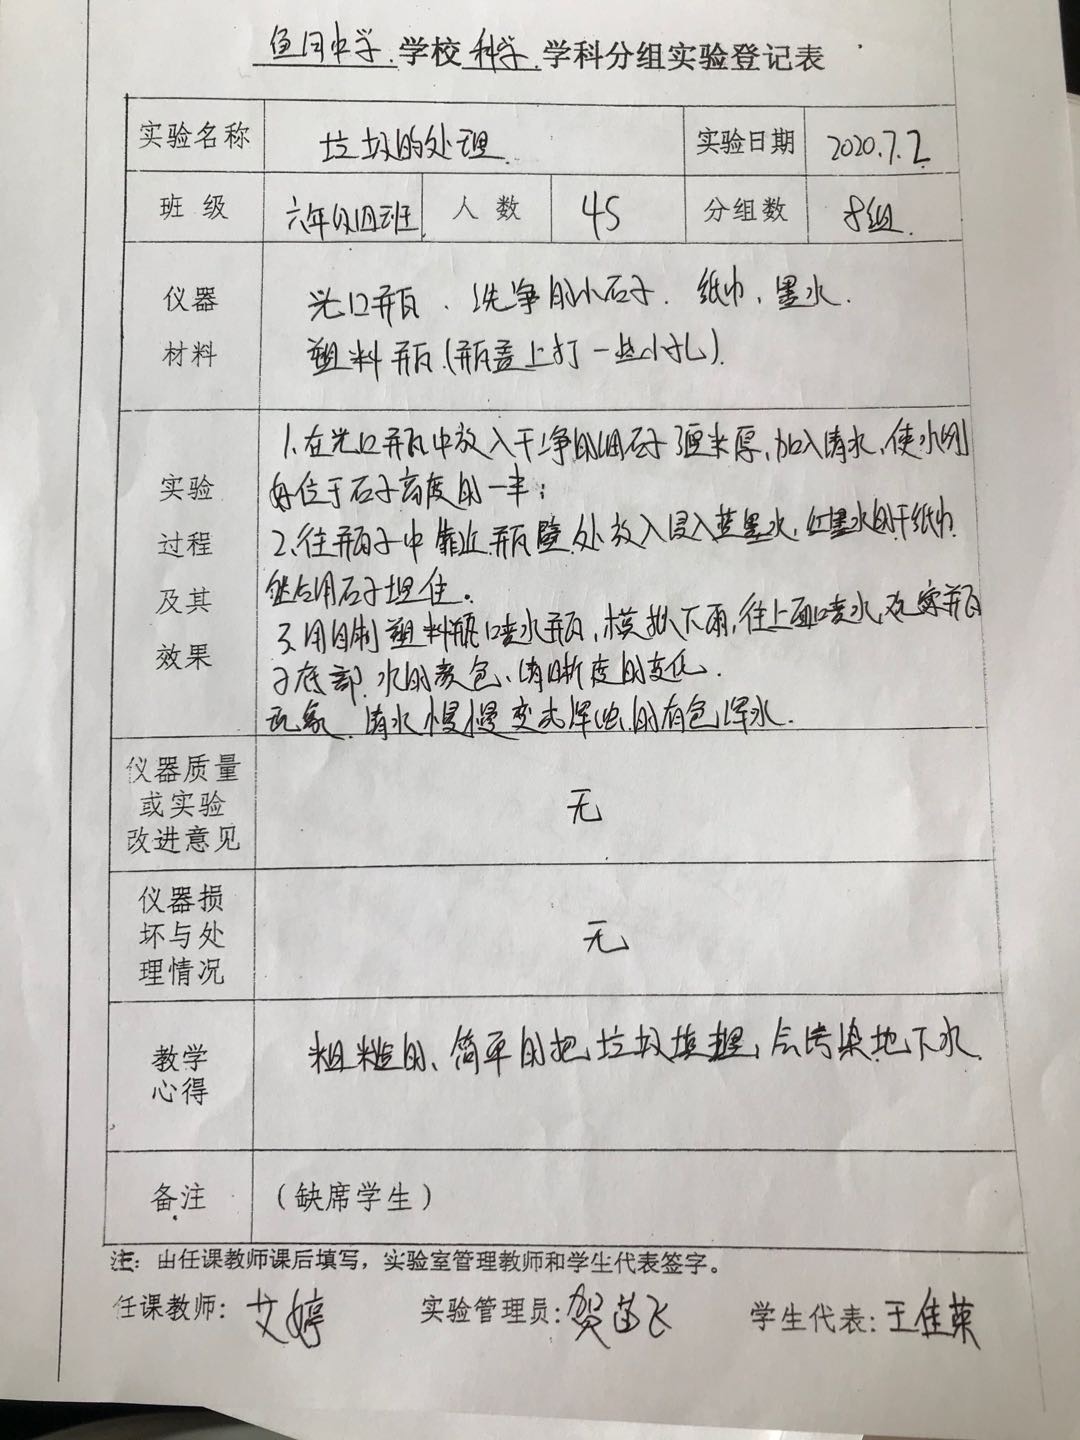 鱼河中学 学校 科学 学科分组实验登记表
实验名称 垃圾的处理 实验日期 2020.7.2
班级 六年级四班 人数 45 分组数 8组
仪器材料
光口瓶、洗净的小石子、纸巾、墨水.
塑料瓶(瓶盖上打一些小孔).
实验过程及其效果
1、在光口瓶中放入干净的细石子3厘米厚,加入清水,使水刚
好位于石子高度的一半;
2、往瓶子中靠近瓶壁处放入浸入蓝墨水,红墨水的干纸巾
然后用石子埋住。
3、用自制塑料瓶喷水瓶,模拟下雨,往上面喷水,观察瓶
子底部水的颜色、清晰度的变化.
现象、清水慢慢变成浑浊的有色浑水.
仪器质量或实验改进意见 无
仪器损坏与处理情况 无
教学心得 粗糙的、简单的把垃圾填埋,会污染地下水.
备注 (缺席学生)
注:由任课教师课后填写,实验室管理教师和学生代表签字。
任课教师:艾婷 实验管理员:贺苗飞 学生代表:王佳英